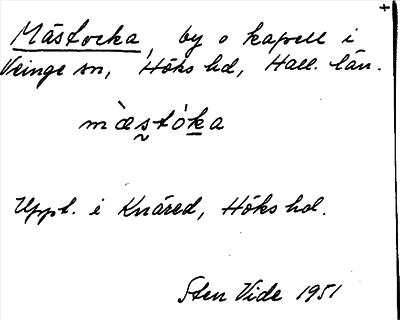 +
Mästocka, by o kapell i
Veinge sn, Höks hd, Hall. län.
mæ̀stòka
Uppt. i Knäred, Höks hd.
Sten Vide 1951